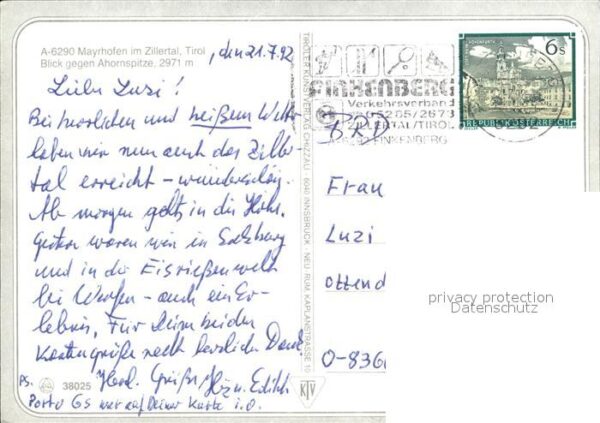 A-6290 Mayrhofen im Zillertal, Tirol
Blick gegen Ahornspitze, 2971 m
, den 21.7.92
Liebe Luzi!
Bei herrlichem und heißem Wetter
haben wir nun auch das Ziller-
tal erreicht – wunderschön.
Ab morgen gehts in die Höhe.
Gestern waren wir in Salzburg
und in der Eisriesenwelt
bei Werfen – auch ein Er-
lebnis. Für Deine beiden
Kartengrüße recht herzlich Dank!
Herzl. Grüße, Hzn. Edith
PS.
Porto 6S war auf Deiner Karte i.O.
38025
TIROLER KUNSTVERLAG CHIZZALI 6040 INNSBRUCK NEU RUM KAPLANSTRASSE 10
KTV
FINKENBERG
Verkehrsverband
05285/2673
ZILLERTAL/TIROL
FINKENBERG
6 S
REPUBLIK ÖSTERREICH
BRD
Frau
Luzi
Ottend
O-836
privacy protection
Datenschutz